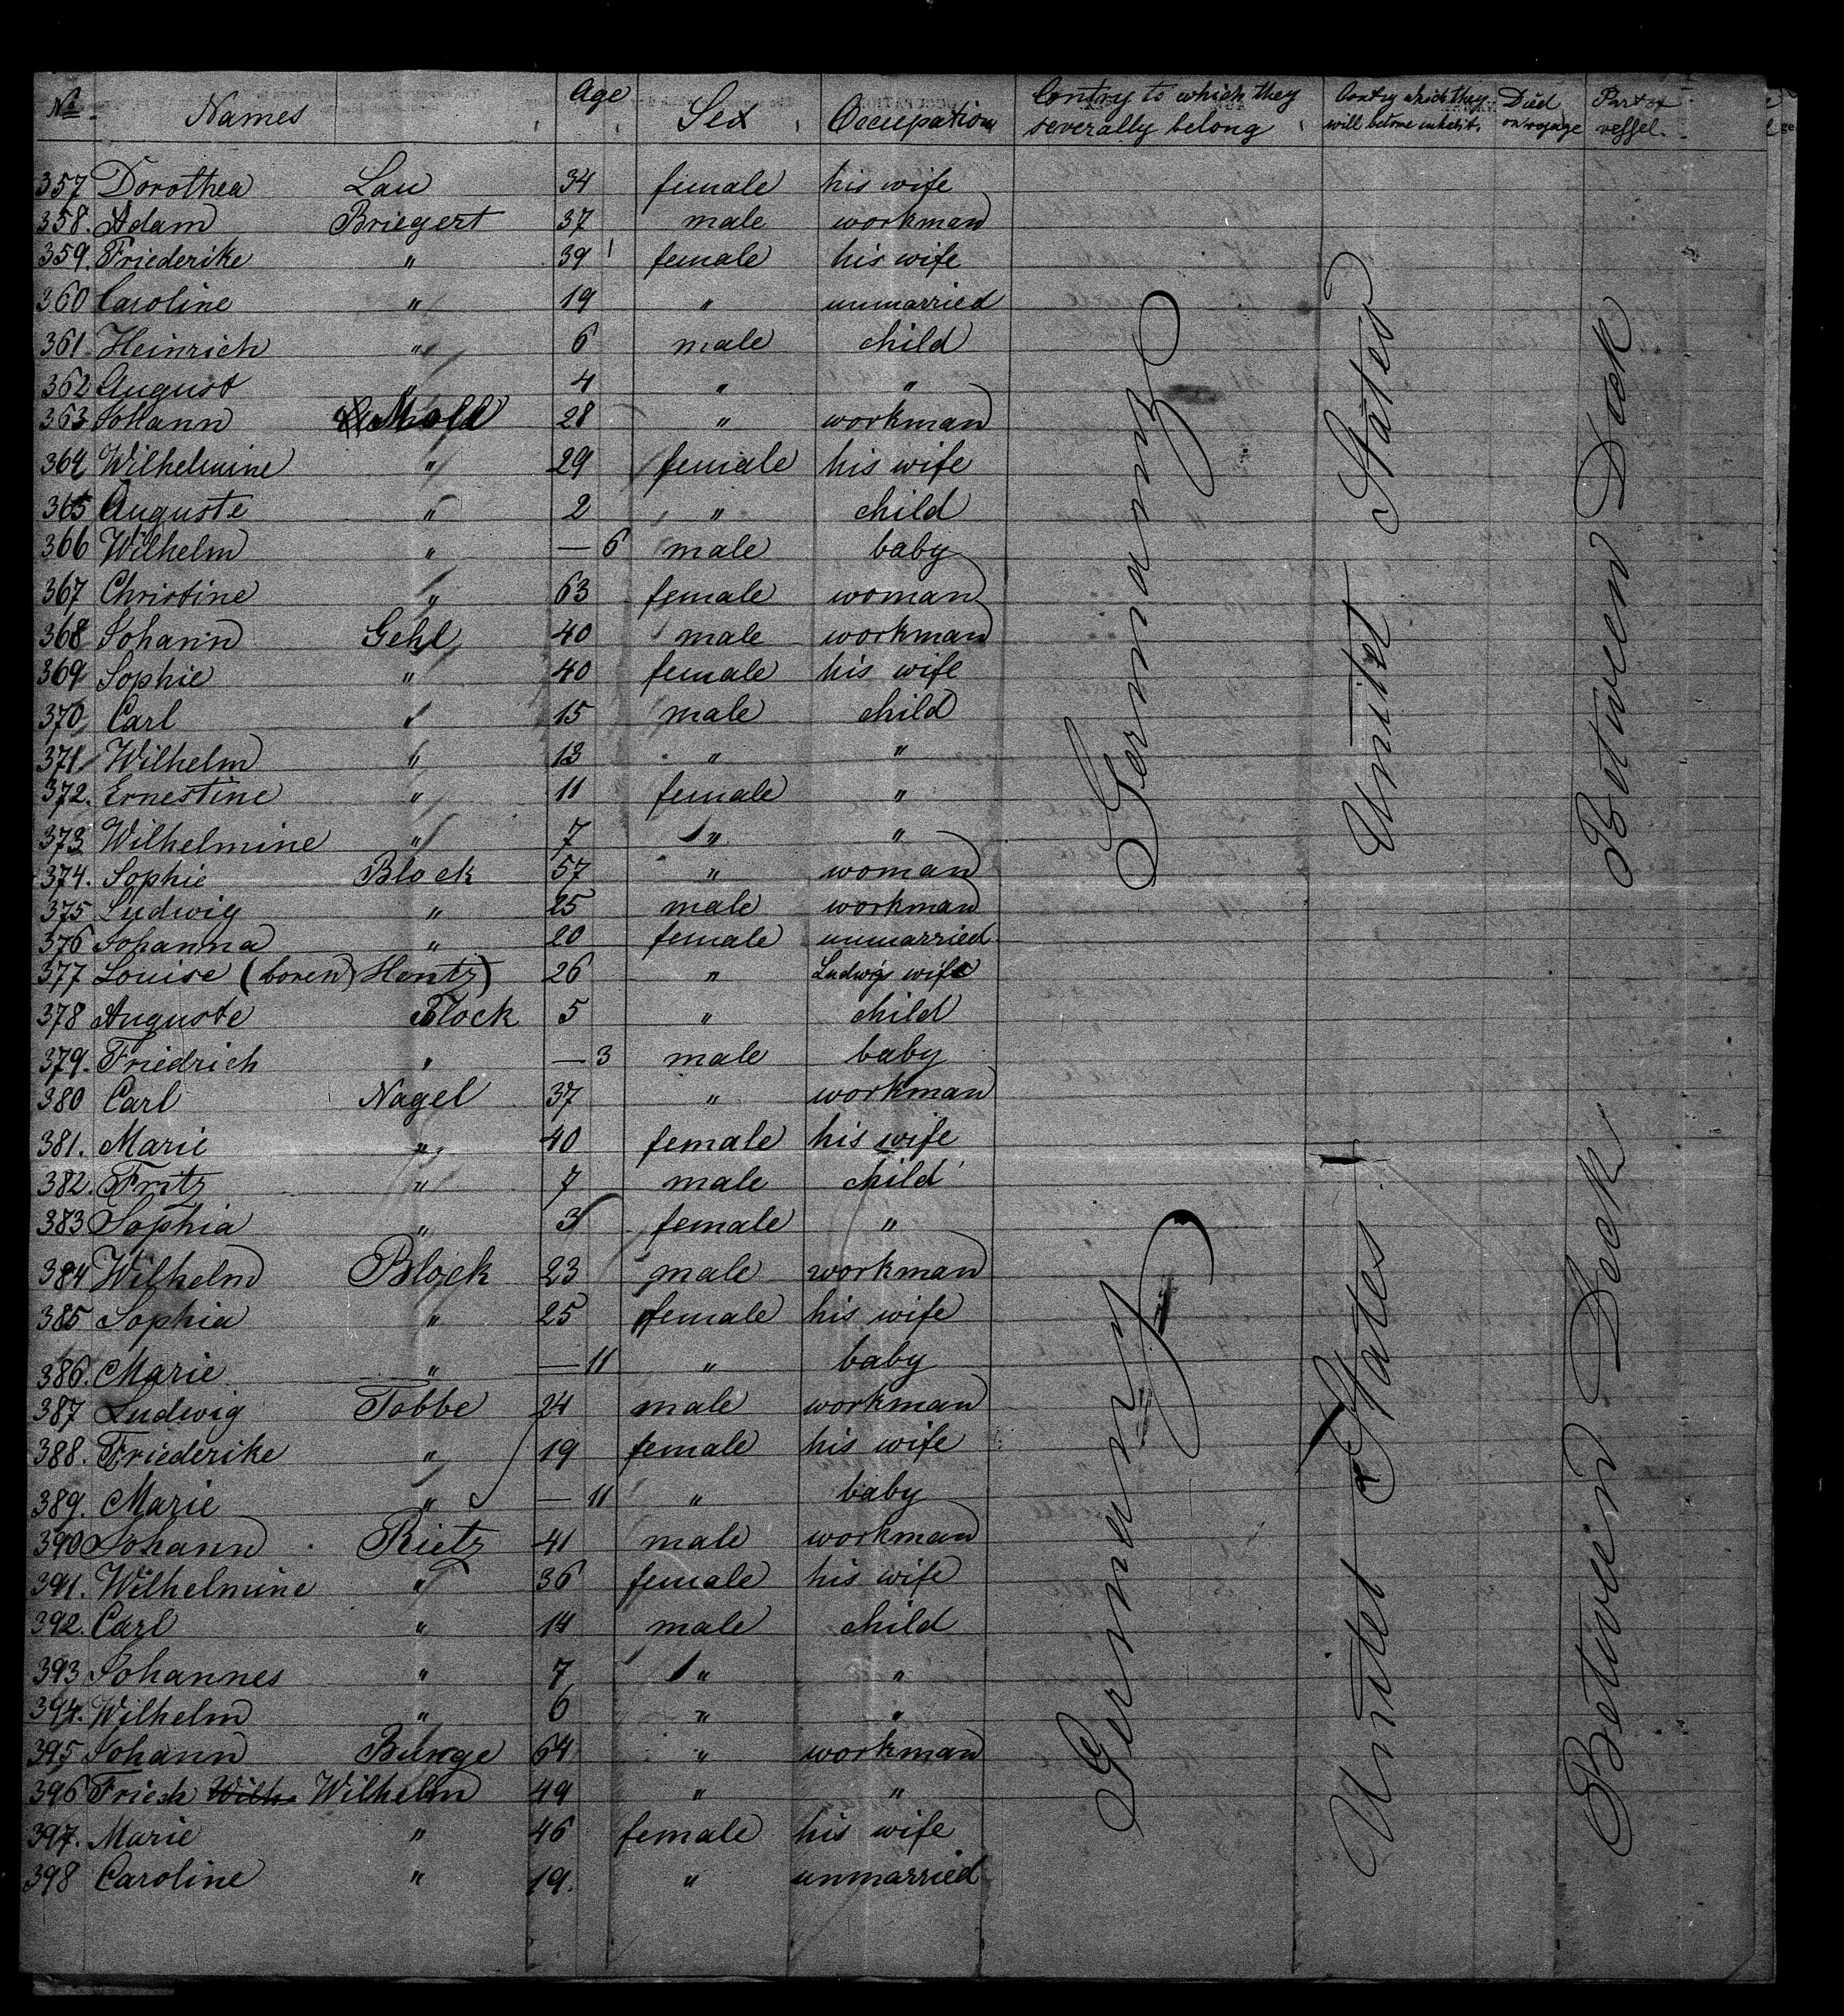 No Names Age Sex Occupation Contry to which they severally belong Contry which they will betome inhabit. Died on voyage Part of vessel.
357 Dorothea Lau 34 female his wife
358. Adam Briegert 37 male workman
359. Friederike " 39 female his wife
360 Caroline " 19 " unmarried
361 Heinrich " 6 male child
362 August " 4 " "
363 Johann 28 " workman
364 Wilhelmine " 29 female his wife
365 Auguste " 2 " child
366 Wilhelm " — 6 male baby
367 Christine " 63 female woman
368 Johann Gehl 40 male workman
369 Sophie " 40 female his wife
370 Carl " 15 male child
371. Wilhelm " 13 " "
372. Ernestine " 11 female "
373 Wilhelmine " 7 " "
374. Sophie Block 57 " woman
375 Ludwig " 25 male workman
376 Johanna " 20 female unmarried
377 Louise (boren Hentz) 26 " Ludwigs wife
378 Auguste Block 5 " child
379. Friedrich " — 3 male baby
380 Carl Nagel 37 " workman
381. Marie " 40 female his wife
382. Fritz " 7 male child
383 Sophia " 3 female "
384 Wilhelm Block 23 male workman
385 Sophia " 25 female his wife
386. Marie " — 11 " baby
387 Ludwig Tobbe 24 male workman
388. Friederike " 19 female his wife
389. Marie " — 11 " baby
390 Johann Rietz 41 male workman
391. Wilhelmine " 36 female his wife
392. Carl " 14 male child
393 Johannes " 7 " "
394. Wilhelm " 6 " "
395 Johann Bunge 64 " workman
396 Friedr Wilh Wilhelm 49 " "
397. Marie " 46 female his wife
398 Caroline " 19. " unmarried
Germany
Unitet States
Between Deck
Germany
Unitet States
Between Deck